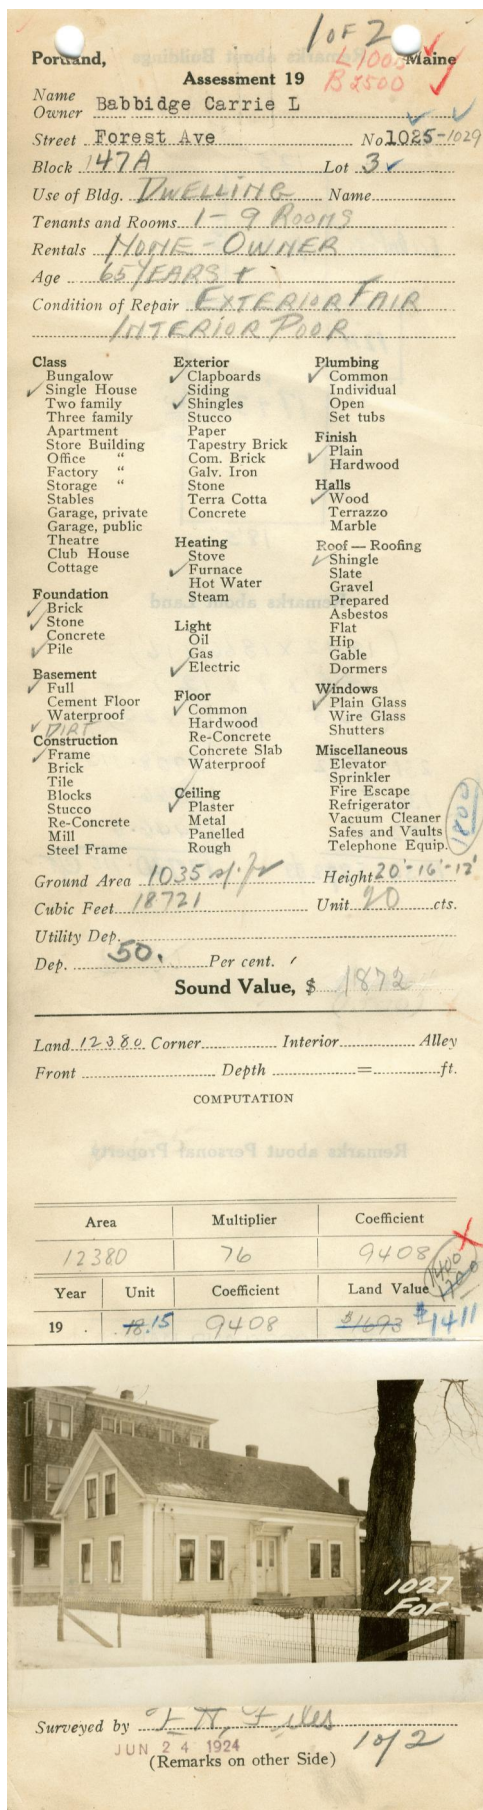 1 OF 2
L 1700
B 2500
Portland, Maine
Assessment 19
Name
Owner Babbidge Carrie L
Street Forest Ave No 1025-1029
Block 147A Lot 3
Use of Bldg. DWELLING Name
Tenants and Rooms 1-9 ROOMS
Rentals HOME-OWNER
Age 65 YEARS +
Condition of Repair EXTERIOR FAIR
INTERIOR POOR
Class
Bungalow
✓ Single House
Two family
Three family
Apartment
Store Building
Office "
Factory "
Storage "
Stables
Garage, private
Garage, public
Theatre
Club House
Cottage
Foundation
✓ Brick
✓ Stone
Concrete
✓ Pile
Basement
✓ Full
Cement Floor
Waterproof
✓ DIRT
Construction
✓ Frame
Brick
Tile
Blocks
Stucco
Re-Concrete
Mill
Steel Frame
Exterior
✓ Clapboards
Siding
✓ Shingles
Stucco
Paper
Tapestry Brick
Com. Brick
Galv. Iron
Stone
Terra Cotta
Concrete
Heating
Stove
✓ Furnace
Hot Water
Steam
Light
Oil
Gas
✓ Electric
Floor
✓ Common
Hardwood
Re-Concrete
Concrete Slab
Waterproof
Ceiling
✓ Plaster
Metal
Panelled
Rough
Plumbing
✓ Common
Individual
Open
Set tubs
Finish
✓ Plain
Hardwood
Halls
✓ Wood
Terrazzo
Marble
Roof — Roofing
✓ Shingle
Slate
Gravel
Prepared
Asbestos
Flat
Hip
Gable
Dormers
Windows
✓ Plain Glass
Wire Glass
Shutters
Miscellaneous
Elevator
Sprinkler
Fire Escape
Refrigerator
Vacuum Cleaner
Safes and Vaults
Telephone Equip.
1800
Ground Area 1035 sq. ft Height 20'-16'-12'
Cubic Feet 18721 Unit 20 cts.
Utility Dep.
Dep. 50. Per cent.
Sound Value, $ 1872
Land 12380 Corner Interior Alley
Front Depth = ft.
COMPUTATION
Area Multiplier Coefficient
12380 76 9408
Year Unit Coefficient Land Value
1400
1700
19 . .18 .15 9408 $1693 $1411
1027
For
Surveyed by F N, Files
JUN 24 1924
1 of 2
(Remarks on other Side)